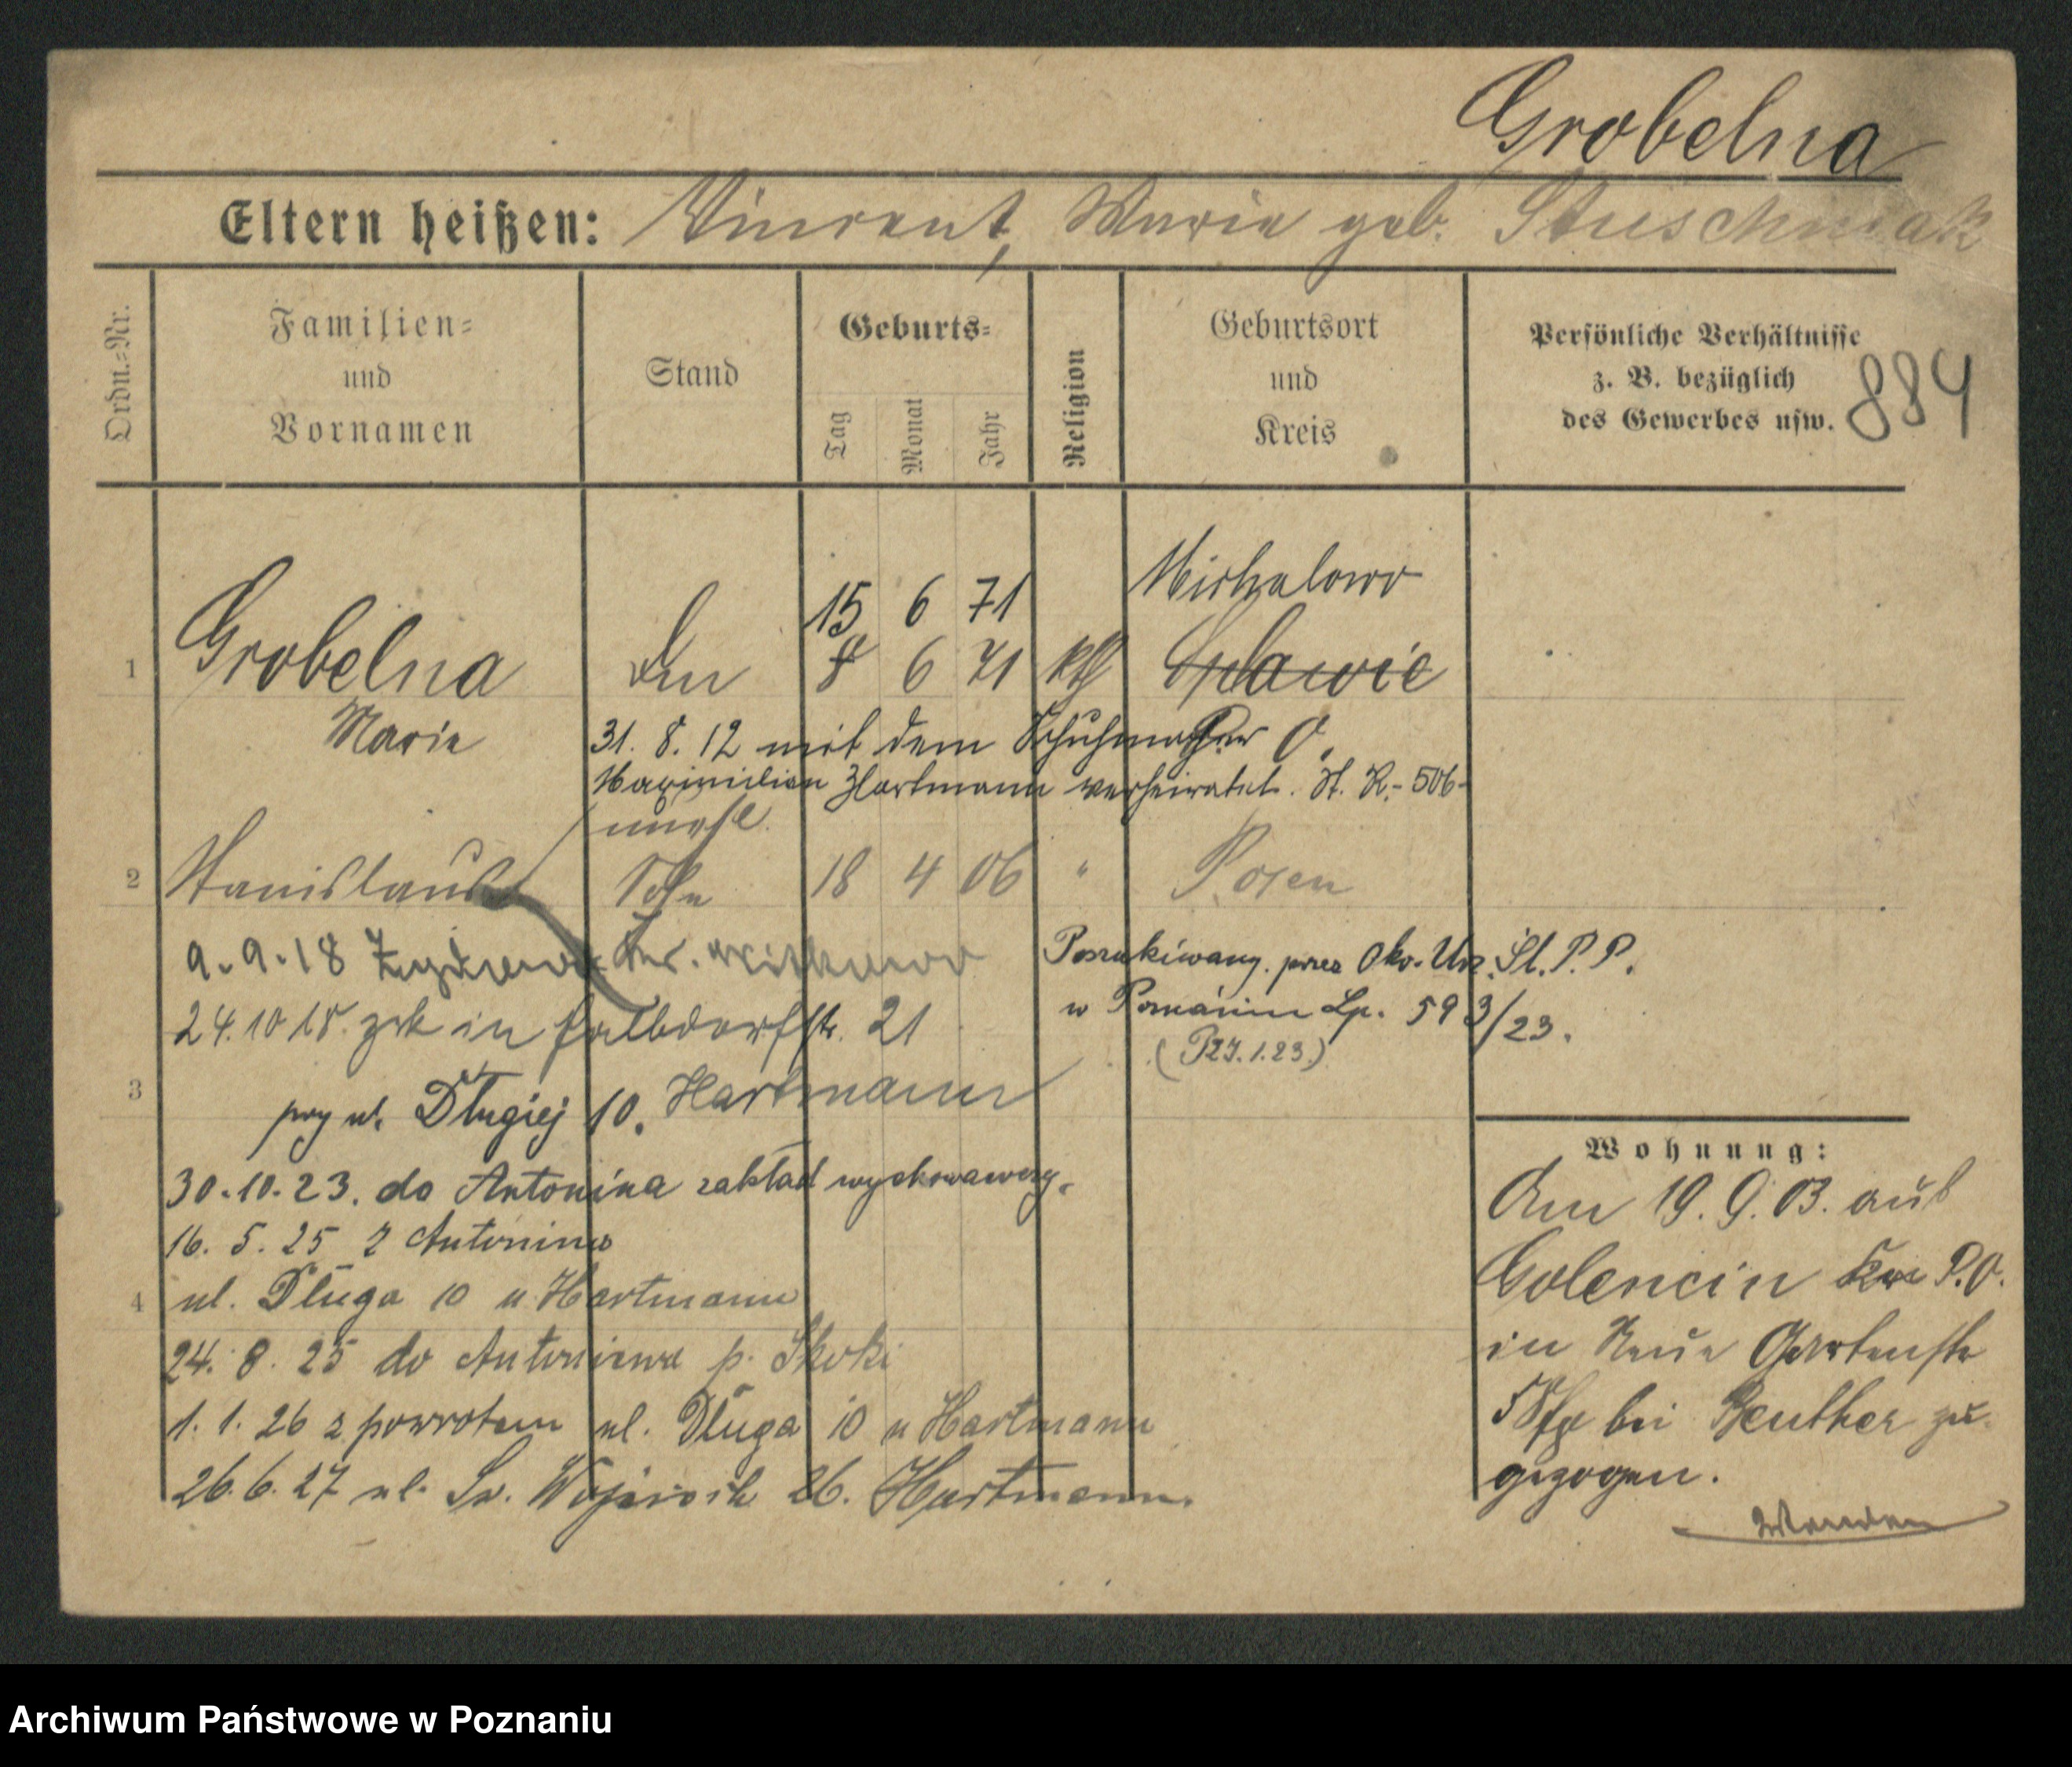 Grobelna
Eltern heißen: Vincent, Marie geb. Stuschniak
Ordn.-Nr.
Familien-
und
Vornamen
Stand
Geburts-
Tag
Monat
Jahr
Religion
Geburtsort
und
Kreis
Persönliche Verhältnisse
z. B. bezüglich
des Gewerbes usw.
884
Michalowo
15 6 71
1 Grobelna 8 6 71 kth Splawie
Marie
31. 8. 12 mit dem Schuhmacher
Maximilian Hartmann verheiratet. St. R. - 506-
unehl.
2 Stanislaus Sohn 18 4 06 " Posen
9.9.18 Kr. Witkowo
24.10 18. zrk in Halbdorfstr. 21
Poszukiwany. przez Okr. Urz. Śl. P. P.
w Poznaniu Lp. 593/23.
3
przy ul. Długiej 10. Hartmann
30.10.23. do Antonina zakład wychowawczy.
16. 5. 25 z Antonina
4 ul. Długa 10 u Hartmann
24. 8. 25 do Antoniewa p. Skoki
1. 1. 26 z powrotem ul. Długa 10 u Hartmann
26.6.27 ul. Św. Wojciech 26. Hartmann.
Wohnung:
Am 19. 9. 03. aus
Golencin Kr P.O.
in Neue Gartenstr
bei Beuther zu-
gezogen.
Wenden
Archiwum Państwowe w Poznaniu